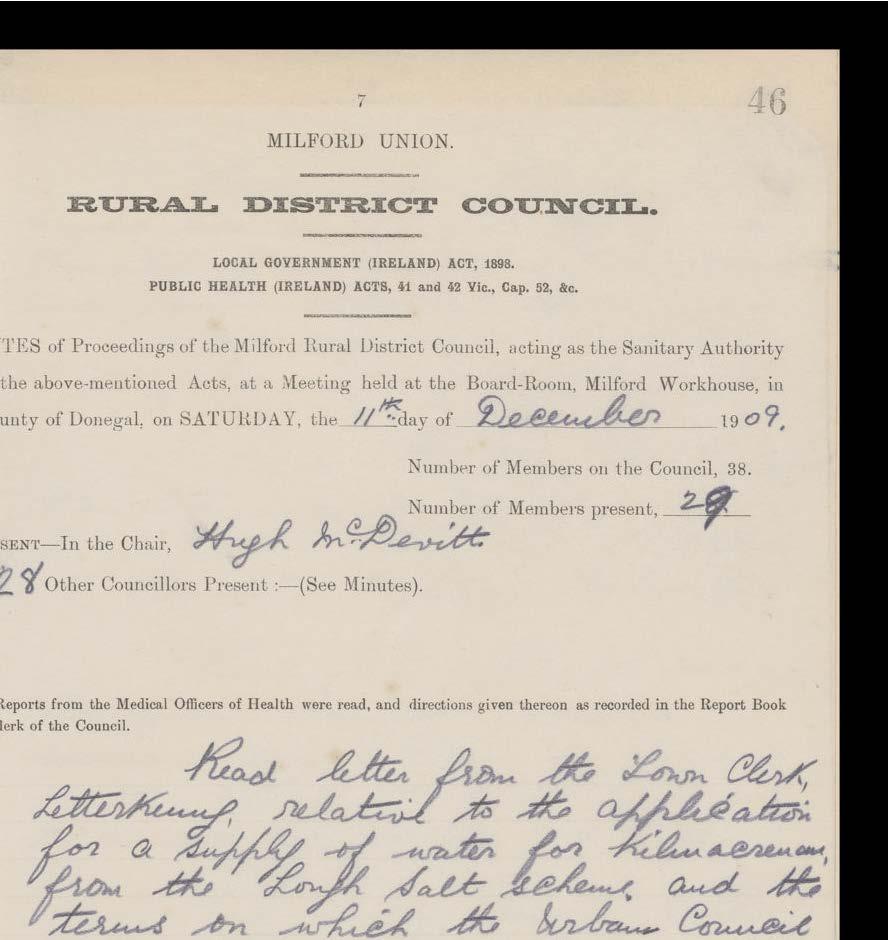 46
7
MILFORD UNION.
RURAL DISTRICT COUNCIL.
LOCAL GOVERNMENT (IRELAND) ACT, 1898.
PUBLIC HEALTH (IRELAND) ACTS, 41 and 42 Vic., Cap. 52, &c.
TES of Proceedings of the Milford Rural District Council, acting as the Sanitary Authority
the above-mentioned Acts, at a Meeting held at the Board-Room, Milford Workhouse, in
unty of Donegal, on SATURDAY, the 11th day of December 1909.
Number of Members on the Council, 38.
Number of Members present, 29
SENT—In the Chair, Hugh McDevitt
28 Other Councillors Present :—(See Minutes).
Reports from the Medical Officers of Health were read, and directions given thereon as recorded in the Report Book
lerk of the Council.
Read letter from the Town Clerk,
Letterkenny, relative to the application
for a supply of water for Kilmacrenan,
from the Lough Salt scheme, and the
terms on which the Urban Council